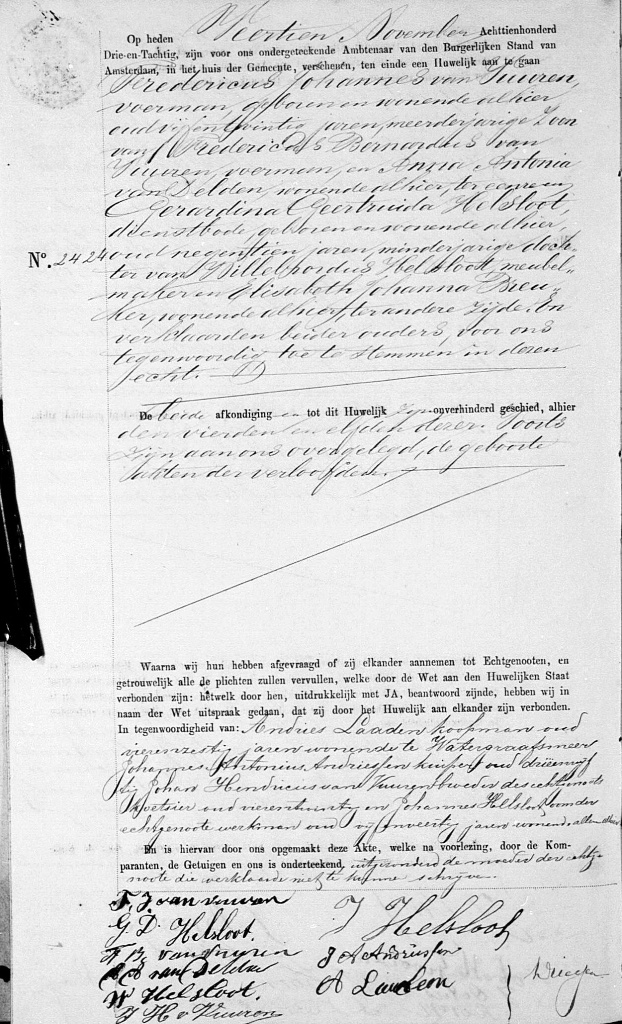 Op heden Veertien November Achttienhonderd
Drie-en-Tachtig, zijn voor ons ondergeteekende Ambtenaar van den Burgerlijken Stand van
Amsterdam, in het huis der Gemeente, verschenen, ten einde een Huwelijk aan te gaan
Fredericus Johannes van Vuuren,
voerman, geboren en wonende alhier
oud vijfentwintig jaren, meerderjarige Zoon
van Fredericus Bernardus van
Vuuren, voerman, en Anna Antonia
van Delden, wonende alhier, ter eenre en
Gerardina Geertruida Helsloot,
dienstbode, geboren en wonende alhier,
No. 2424 oud negentien jaren, minderjarige doch-
ter van Willebrordus Helsloot, meubel-
maker en Elisabeth Johanna Breu-
ker, wonende alhier, ter andere zijde. En
verklaarden beider ouders, voor ons
tegenwoordig toe te stemmen in dezen
echt.
De beide afkondigingen tot dit Huwelijk zijn onverhinderd geschied, alhier
den vierden en elfden dezer. Voorts
zijn aan ons overgelegd, de geboorte
akten der verloofden.
Waarna wij hun hebben afgevraagd of zij elkander aannemen tot Echtgenooten, en
getrouwelijk alle de plichten zullen vervullen, welke door de Wet aan den Huwelijken Staat
verbonden zijn: hetwelk door hen, uitdrukkelijk met JA, beantwoord zijnde, hebben wij in
naam der Wet uitspraak gedaan, dat zij door het Huwelijk aan elkander zijn verbonden.
In tegenwoordigheid van: Andries Laaden koopman oud
vierenzestig jaren wonende te Watergraafsmeer
Johannes Antonius Andriessen kuiper oud drieenvijf
tig Johan Henricus van Vuuren broeder des echtgenoots
koetsier oud vierentwintig en Johannes Helsloot oom der
echtgenoote werkman oud vijfenveertig jaren wonende allen alhier
En is hiervan door ons opgemaakt deze Akte, welke na voorlezing, door de Kom-
paranten, de Getuigen en ons is onderteekend, uitgezonderd de moeder der echtge-
noote die verklaarde niet te kunnen schrijven.
F. J. van vuuren
G. D. Helsloot
J Helsloot
F B van vuuren
J A Andriessen
A A van Delden
W Helsloot.
J H v Vuuren